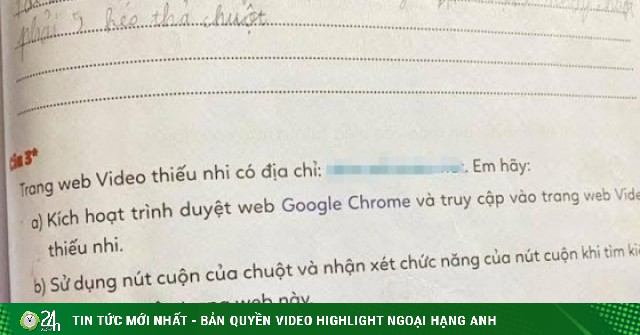 phải, kéo thả chuột
Câu 3*
Trang web Video thiếu nhi có địa chỉ: Em hãy:
a) Kích hoạt trình duyệt web Google Chrome và truy cập vào trang web Vide
thiếu nhi.
b) Sử dụng nút cuộn của chuột và nhận xét chức năng của nút cuộn khi tìm ki
web này.
24h
TIN TỨC MỚI NHẤT - BẢN QUYỀN VIDEO HIGHLIGHT NGOẠI HẠNG ANH